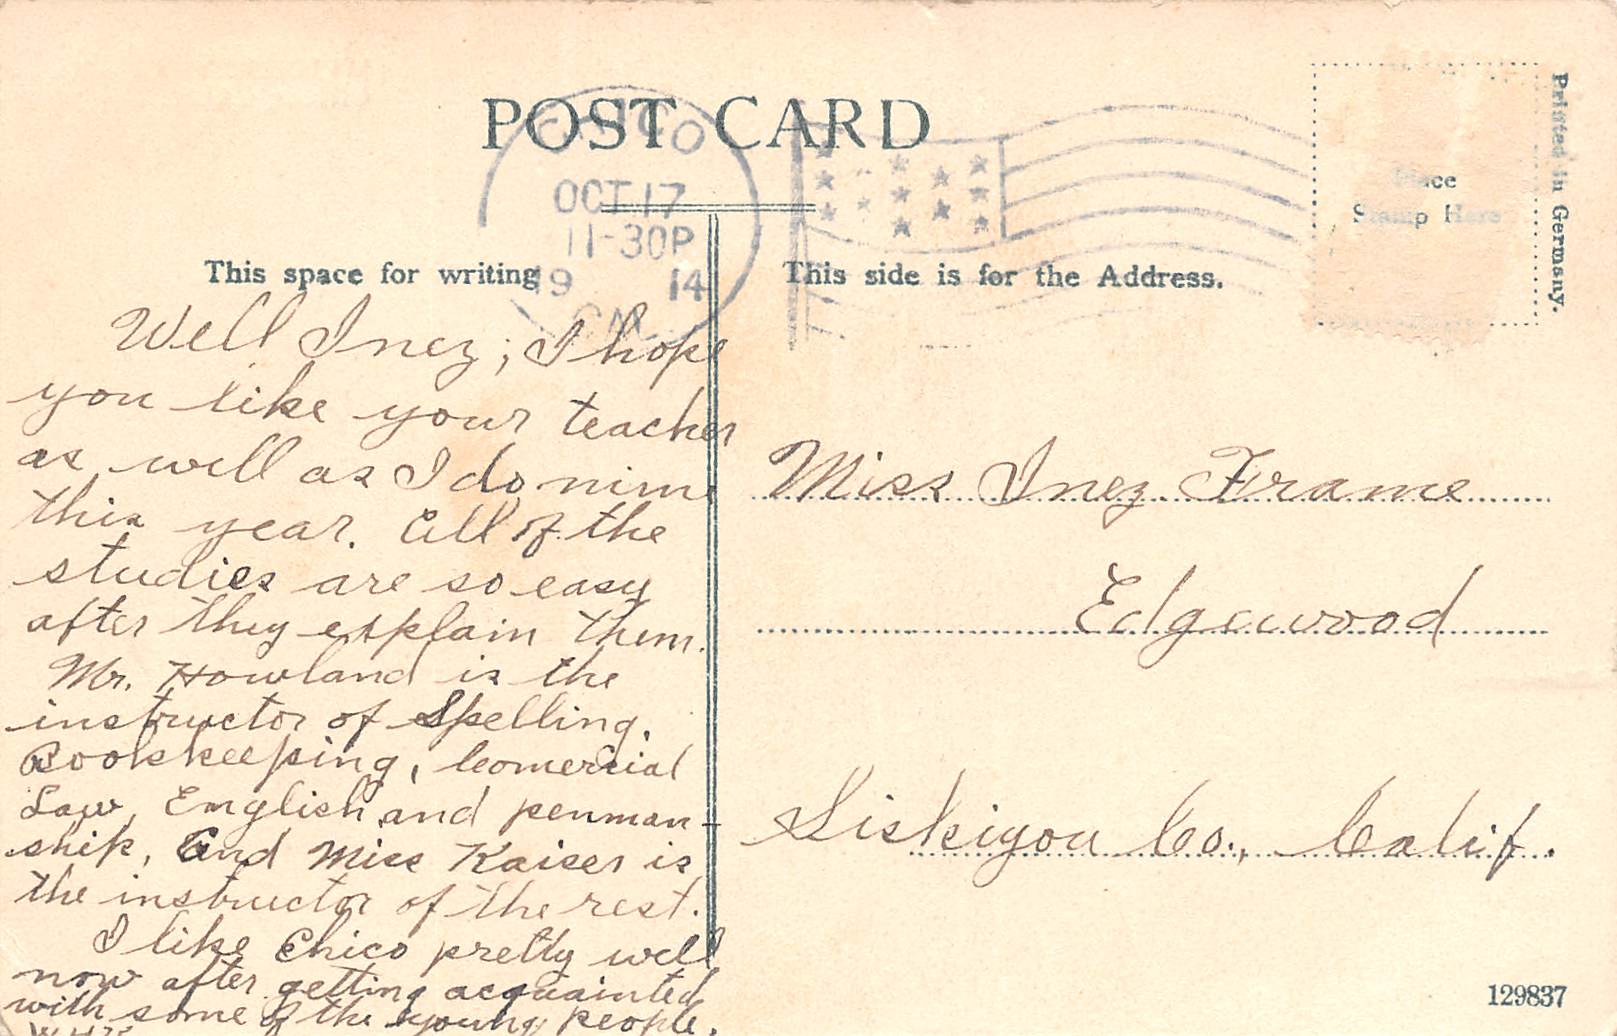 POST CARD
CHICO
OCT 17
11-30P
19 14
CAL.
Place
Stamp Here
Printed in Germany.
This space for writing
This side is for the Address.
Well Inez; I hope
you like your teacher
as well as I do mine
this year. All of the
studies are so easy
after they explain them.
Mr. Howland is the
instructor of Spelling,
Bookkeeping, Comercial
Law, English and penman-
ship, and Miss Kaiser is
the instructor of the rest.
I like Chico pretty well
now after getting acquainted
with some of the young people.
Miss Inez Frame
Edgewood
Siskiyou Co., Calif.
129837